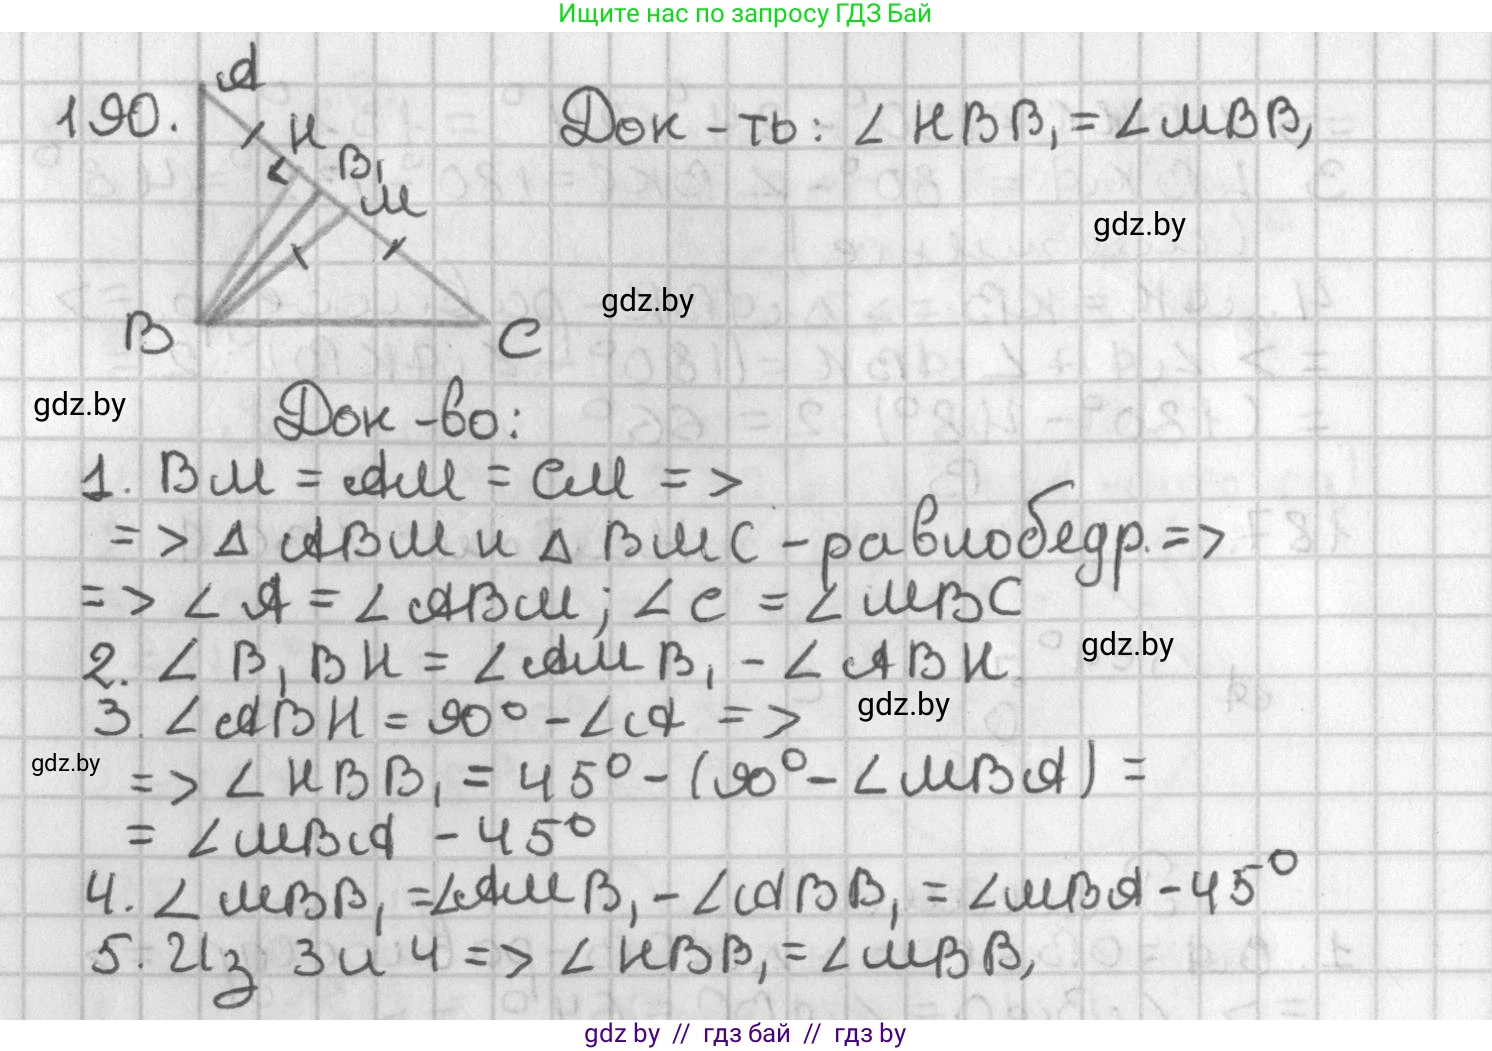 Ищите нас по запросу ГДЗ Бай
A
190.
H
B₁
M
B
C
Док-ть: ∠HBB₁ = ∠MBB₁
gdz.by
gdz.by
gdz.by
Док-во:
1. BM = AM = CM =>
=> △ ABM и △ BMC - равнобедр. =>
=> ∠A = ∠ABM; ∠C = ∠MBC
gdz.by
2. ∠B₁BH = ∠AMB₁ - ∠ABH
3. ∠ABH = 90° - ∠A =>
gdz.by
gdz.by
=> ∠HBB₁ = 45° - (90° - ∠MBA) =
= ∠MBA - 45°
4. ∠MBB₁ = ∠AMB₁ - ∠ABB₁ = ∠MBA - 45°
5. Из 3 и 4 => ∠HBB₁ = ∠MBB₁
gdz by // гдз бай // гдз by